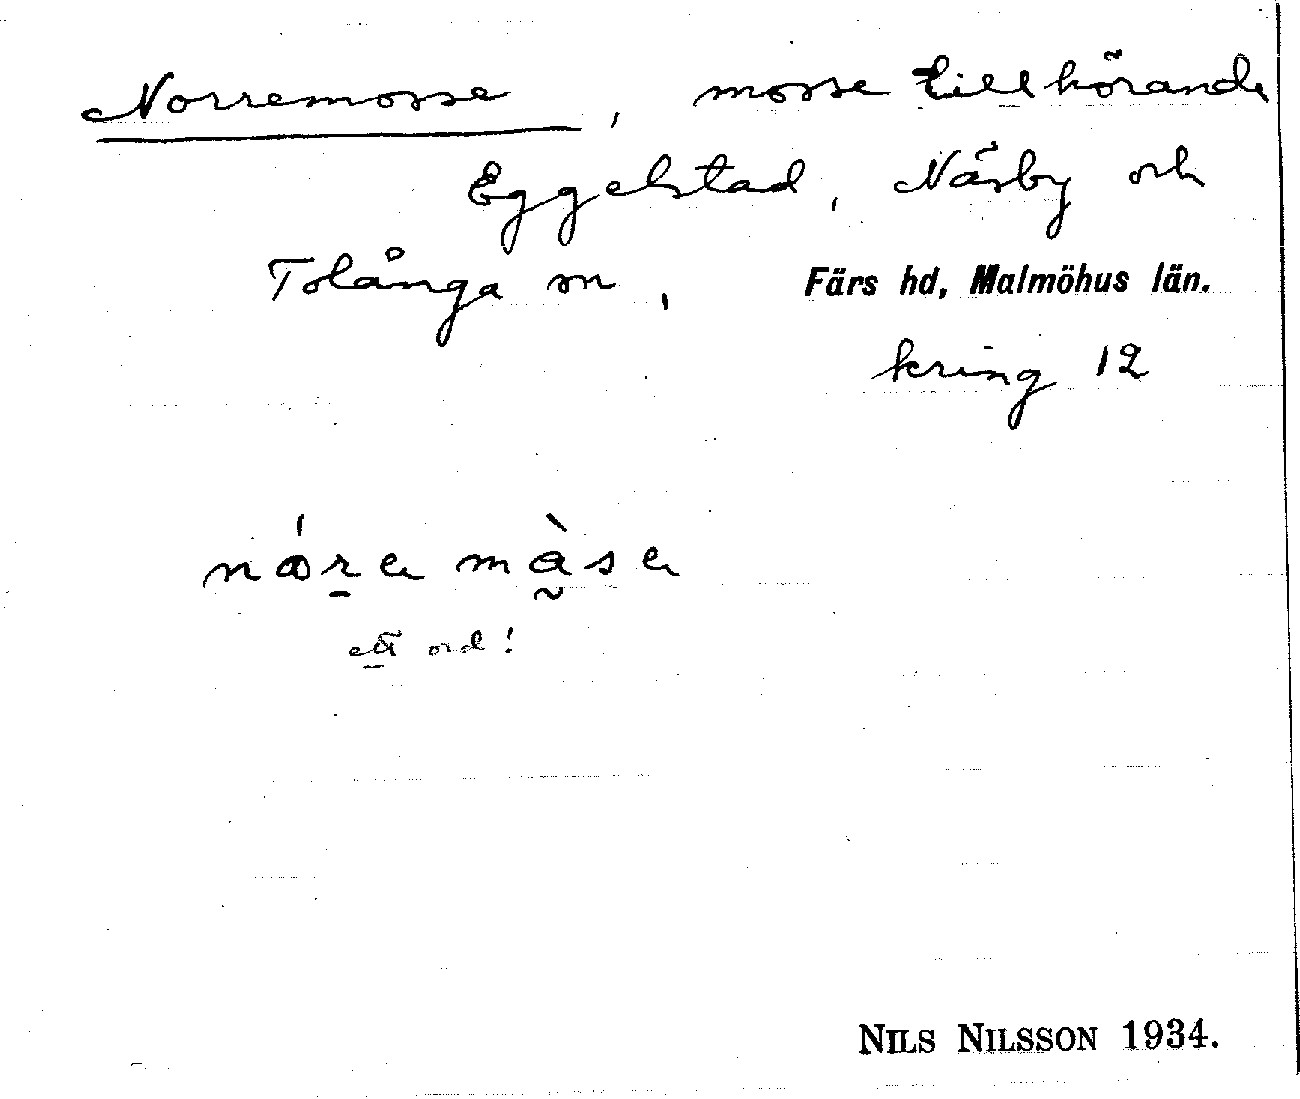 Norremosse, mosse tillhörande
Eggelstad, Näsby och
Tolånga sn, Färs hd, Malmöhus län.
kring 12
ett ord!
NILS NILSSON 1934.